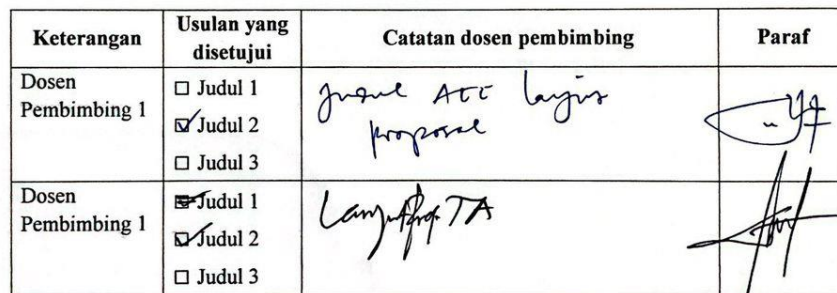 Keterangan
Usulan yang disetujui
Catatan dosen pembimbing
Paraf
Dosen Pembimbing 1
☐ Judul 1
☑ Judul 2
☐ Judul 3
Judul ACC lanjut
proposal
Dosen Pembimbing 1
Judul 1
☑ Judul 2
☐ Judul 3
Lanjut Prop. TA